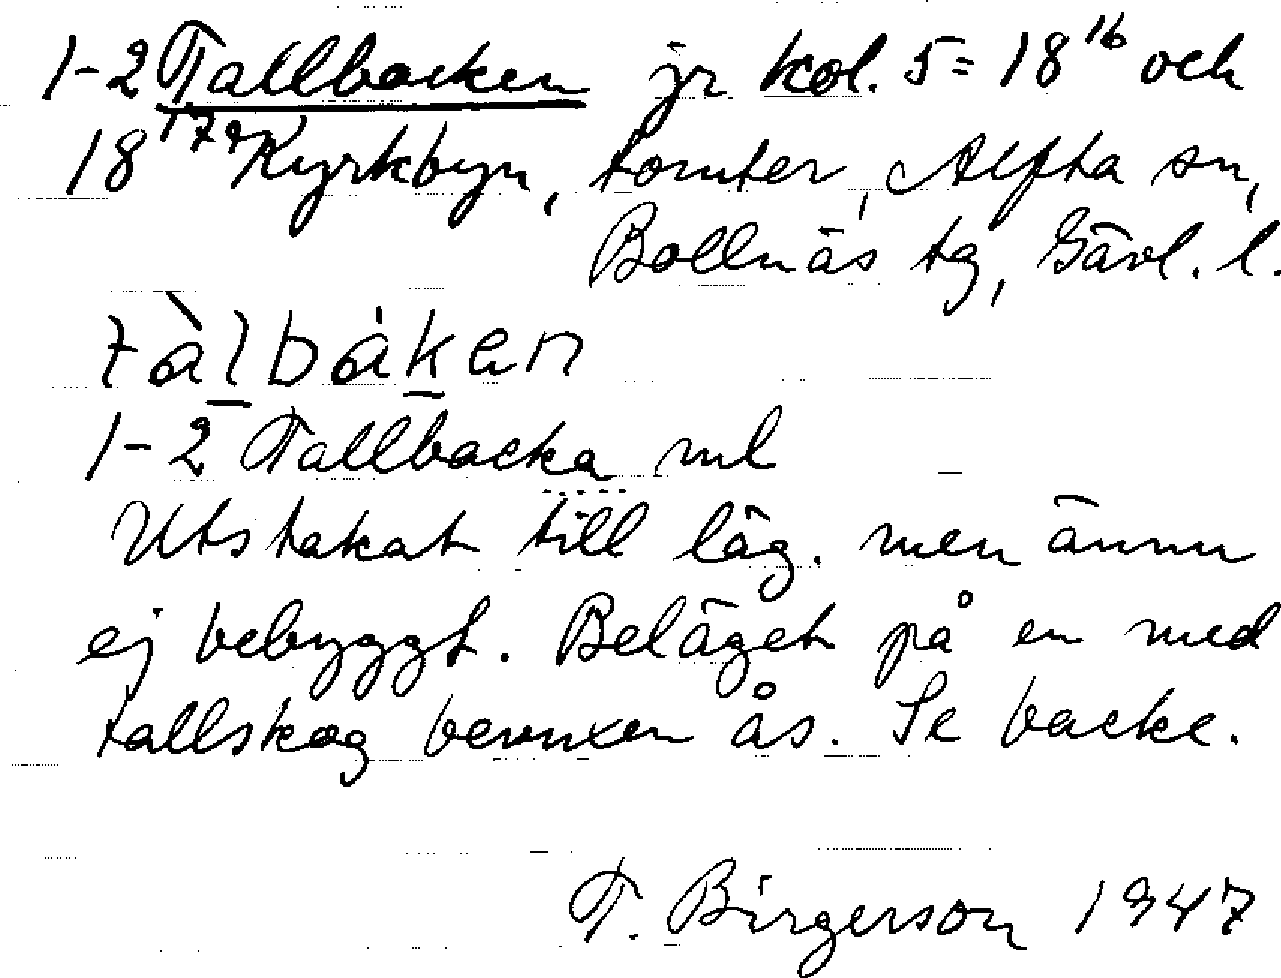 1-2 Tallbacken jr kol. 5 = 18¹⁶ och
18¹⁷ Kyrkbyn, tomter, Alfta sn,
Bollnäs tg, Gävl. l.
tàlbákan
1-2 Tallbacka ml
Utstakat till läg. men ännu
ej bebyggt. Beläget på en med
tallskog bevuxen ås. Se backe.
T. Birgerson 1947